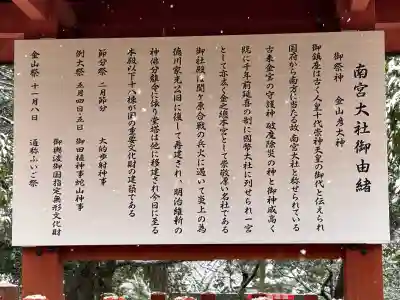 南宮大社御由緒
御祭神　金山彦大神
御鎮座は古く人皇十代崇神天皇の御代と伝えられ
国府から南方に当たる故南宮大社と称せられている
古来金宮の守護神 破魔除災の神と御神威高く
既に千年前延喜の制に國幣大社に列せられ一宮
として亦金之總本宮として崇敬厚い名社である
御社殿は関ヶ原合戦の兵火に遇いて炎上の為
徳川家光公旧に復して再建され、明治維新の
神佛分離令に依り堂塔は他に移建され今日に至る
本殿以下十八棟が国の重要文化財の建築である
節分祭 二月節分　大的歩射神事
例大祭 五月四日・五日　御田植神事蛇山神事
御輿渡御国指定無形文化財
金山祭 十一月八日　通称ふいご祭